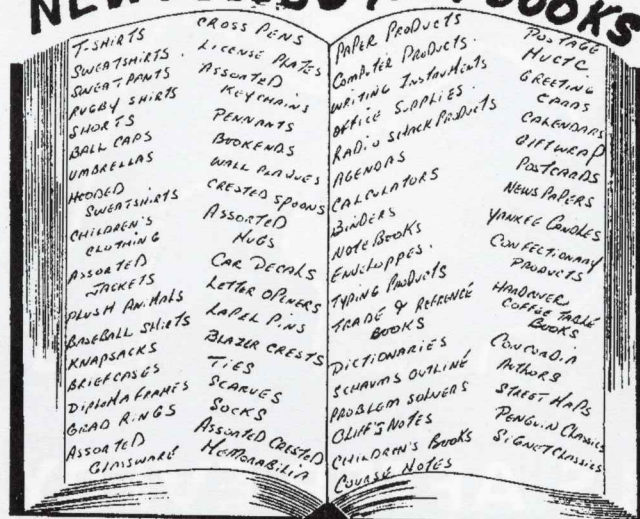 BOOKS
T-SHIRTS
SWEATSHIRTS
SWEATPANTS
RUGBY SHIRTS
SHORTS
BALL CAPS
UMBRELLAS
HOODED
SWEATSHIRTS
CHILDREN'S
CLOTHING
ASSORTED
JACKETS
PLUSH ANIMALS
BASEBALL SHIRTS
KNAPSACKS
BRIEFCASES
DIPLOMA FRAMES
GRAD RINGS
ASSORTED
GLASSWARE
CROSS PENS
LICENSE PLATES
ASSORTED
KEYCHAINS
PENNANTS
BOOKENDS
WALL PLAQUES
CRESTED SPOONS
ASSORTED
MUGS
CAR DECALS
LETTER OPENERS
LAPEL PINS
BLAZER CRESTS
TIES
SCARVES
SOCKS
ASSORTED CRESTED
MEMORABILIA
PAPER PRODUCTS
COMPUTER PRODUCTS
WRITING INSTRUMENTS
OFFICE SUPPLIES
RADIO SHACK PRODUCTS
AGENDAS
CALCULATORS
BINDERS
NOTEBOOKS
ENVELOPPES
TYPING PRODUCTS
TRADE & REFERENCE
BOOKS
DICTIONARIES
SCHAUMS OUTLINE
PROBLEM SOLVERS
CLIFF'S NOTES
CHILDREN'S BOOKS
COURSE NOTES
POSTAGE
GREETING
CARDS
CALENDARS
GIFTWRAP
POSTCARDS
NEWSPAPERS
YANKEE CANDLES
CONFECTIONARY
PRODUCTS
COFFEE TABLE
BOOKS
CONCORDIA
AUTHORS
STREET MAPS
PENGUIN CLASSICS
SIGNET CLASSICS